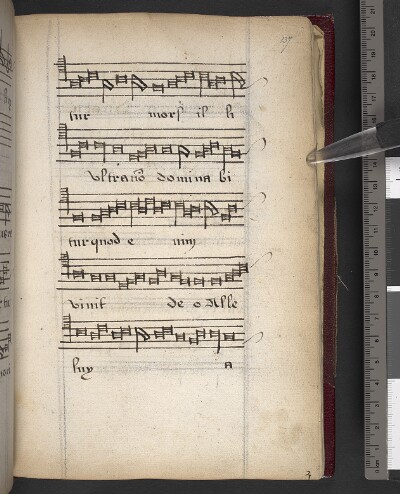 157
tur mors il li
vltra nō domina bi
tur quod e nim
viuit de o Alle
luy a
3